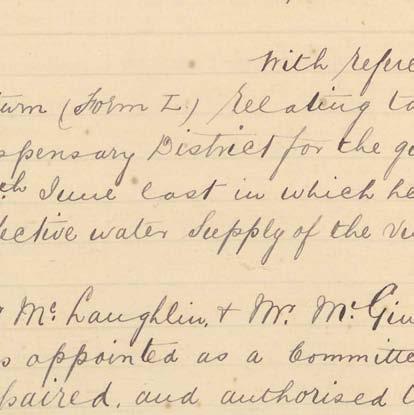 With refere
turn (Form L.) relating to
spensary District for the qu
th June last in which he
fective water Supply of the Vi
Mc Laughlin, & Mr. Mc Gin
s appointed as a Committe
paired, and authorised